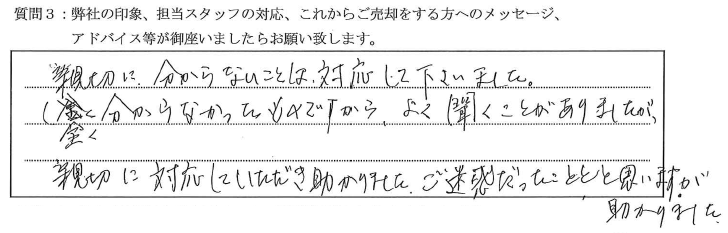 質問3：弊社の印象、担当スタッフの対応、これからご売却をする方へのメッセージ、
アドバイス等が御座いましたらお願い致します。
親切に、分からないことは、対応して下さいました。
（全く分からなかったものですから、よく聞くことがありましたが、
全く
親切に対応していただき助かりました。ご迷惑だったことと思いますが
助かりました。